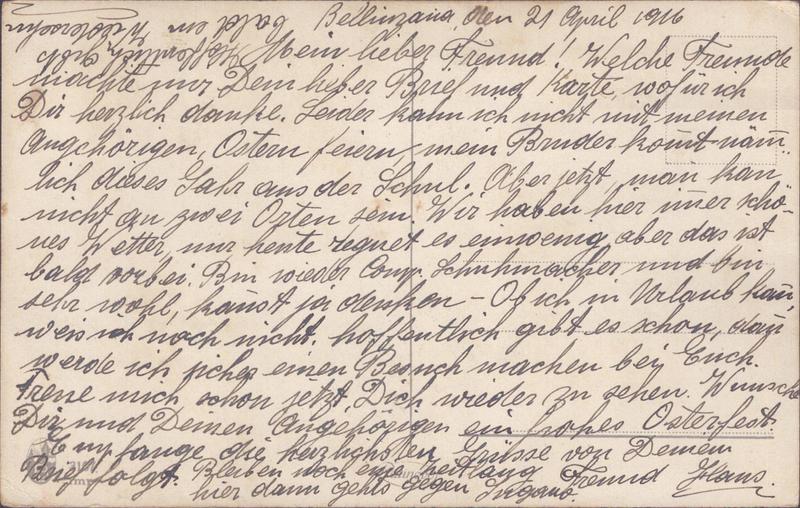 Bellinzona, den 21 April 1916
Mein lieber Freund! Welche Freunde
machte mir Dein lieber Brief und Karte, wofür ich
Dir herzlich danke. Leider kann ich nicht mit meinen
Angehörigen, Ostern feiern, mein Bruder kom̅t näm̅-
lich dieses Jahr aus der Schul. Aber jetzt, man kan
nicht an zwei Orten sein. Wir haben hier im̅er schö-
nes Wetter, nur heute regnet es einwenig aber das ist
bald vorbei. Bin wieder Comp. Schuhmacher und bin
sehr wohl, kan̅st ja denken – Ob ich in Urlaub kan̅,
weis ich noch nicht. hoffentlich gibt es schon, dan̅
werde ich sicher einen Besuch machen bei Euch.
Freue mich schon jetzt, Dich wieder zu sehen. Wünsche
Dir und Deinen Angehörigen ein frohes Osterfest
Empfange die herzlichsten Grüsse von Deinem
Freund Hans.
Brief folgt. Bleiben noch eine zeitlang
hier dann gehts gegen Lugano.
Hoffentlich gibts
bald ein Wiedersehn